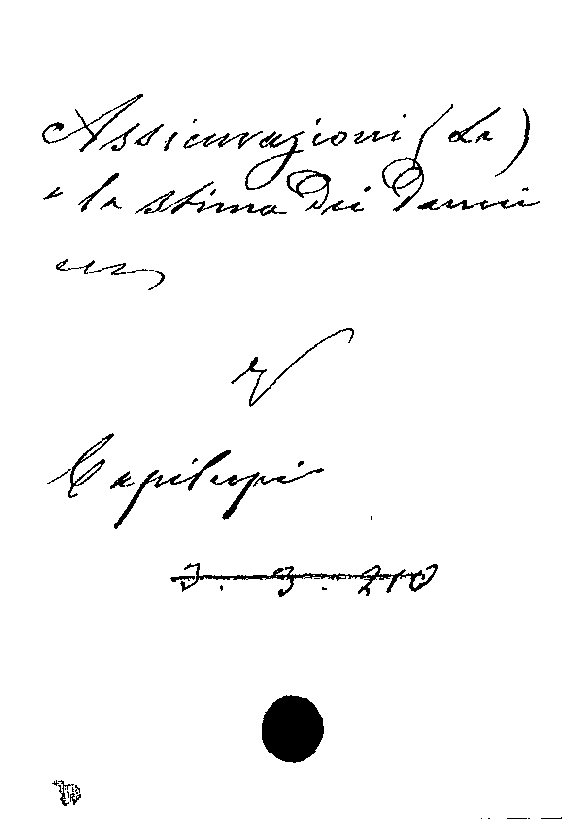 Assicurazioni (Le)
e la stima dei danni
ecc
V
Capilupi
3. 3. 210